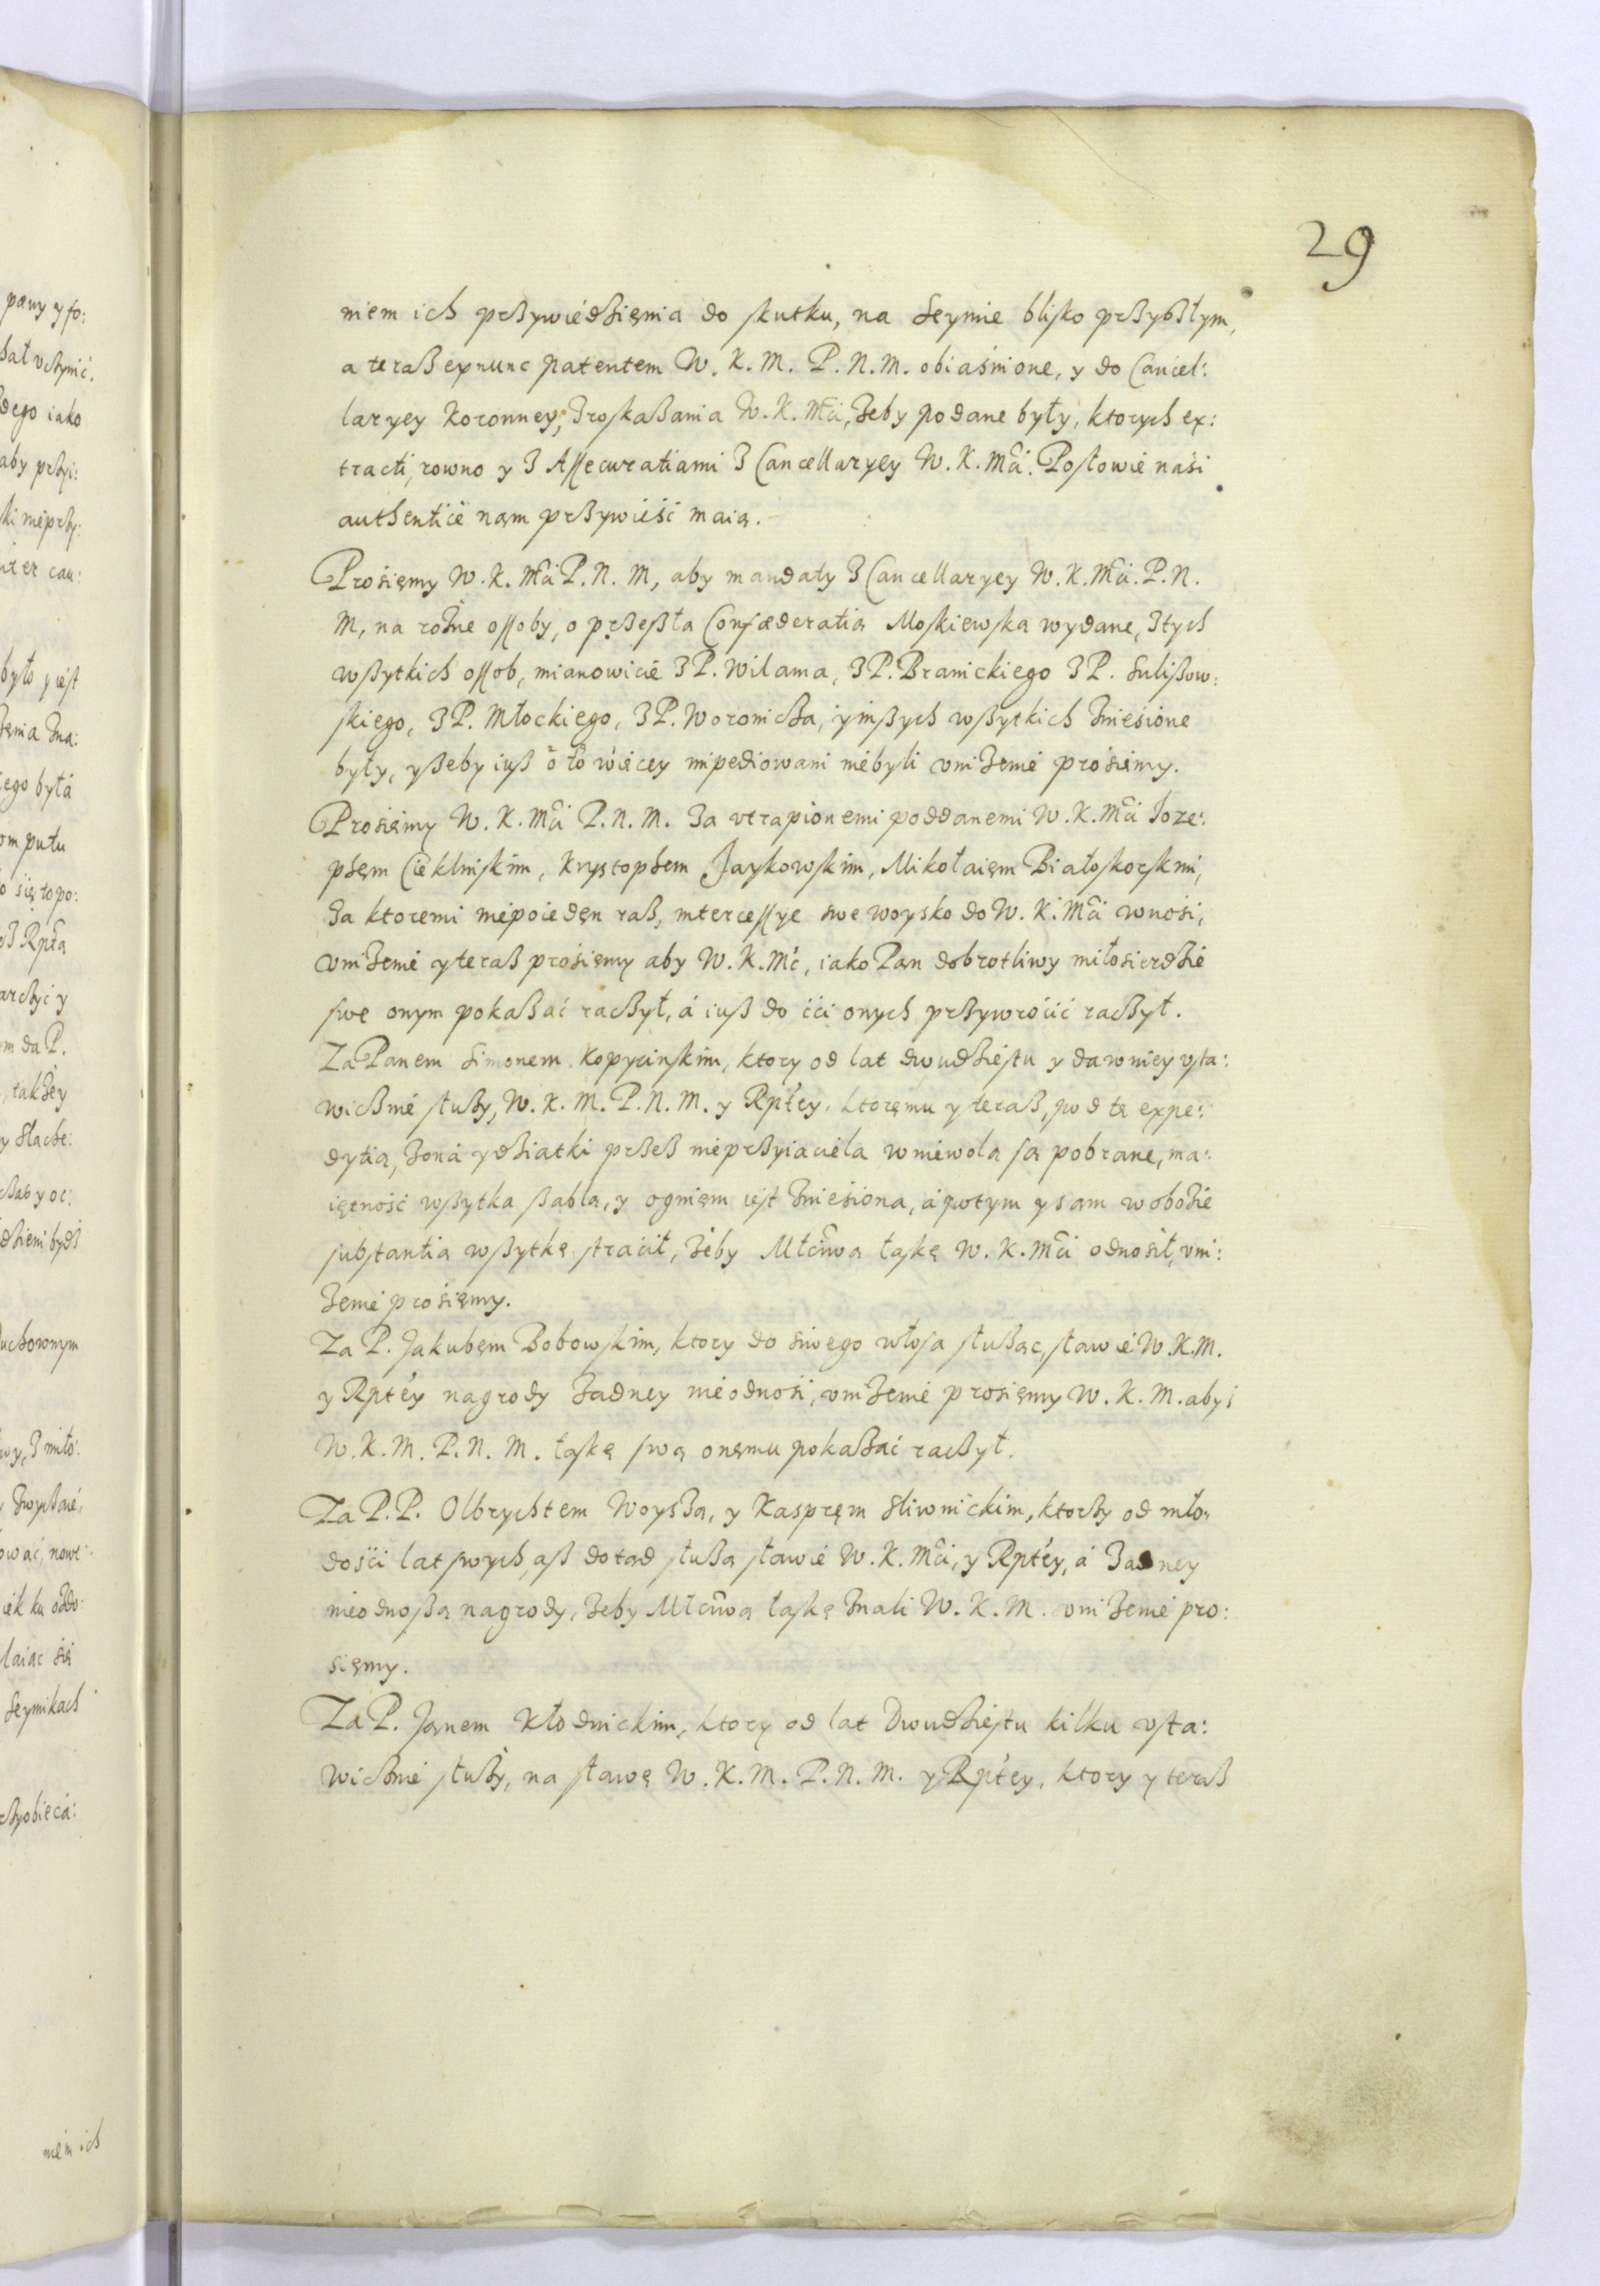 29
niem ich przywiedzięnia do skutku, na Seymie blisko przyszłym,
a teraz exnunc patentem W. K. M. P. N. M. obiaśnione, y do Cancel:
laryey Koronney, z roskazania W. K. Mći, żeby podane były, ktorych ex:
tracti, rowno y z Assecuratiami z Cancellaryey W. K. Mći. Posłowie naśi
authentice nąm przywieść maią.
Prośięmy W. K. Mći P. N. M, aby mandaty z Cancellaryey W. K. Mći. P. N.
M, na rożne ossoby, o przeszłą Confæderatią Moskięwską wydane, z tych
wszytkich ossob, mianowicie z P. Wilama, z P. Branickiego z P. Suliszow:
skiego, z P. Młockiego, z P. Woronicza, y inszych wszytkich znieśione
były, y żeby iuż o to więcey impediowani niebyli uniżenie prośięmy.
Prośięmy W. K. Mći P. N. M. za utrapionemi poddanemi W. K. Mći Joze:
phęm Cieklinskim, Krystophem Jaykowskim, Mikołaięm Białoskorskim,
za ktoremi niepoiedęn raz, intercessye swe woysko do W. K. Mći wnośi,
uniżenie y teraz prośięmy aby W. K. Mć, iako Pąn dobrotliwy miłosierdzie
swe onym pokazać raczył, á iuż do ćći onych przywroćić raczył.
Za Panem Simonem Kopycinskim, ktory od lat dwudziestu y dawniey usta:
wicznie służy, W. K. M. P. N. M. y Rptey. ktoręmu y teraz, pod tę expe:
dytią, żoná y dziatki przez nieprzyiaciela wniewolą są pobrane, ma:
iętność wszytka szablą, y ognięm iest znieśiona, á potym y sam w obozie
substantią wszytkę stracił, żeby Młćiwą łaskę W. K. Mći odnosił, uni:
żenie prośięmy.
Za P. Jakubęm Bobowskim, ktory do śiwego włosa służąc, sławie W. K. M.
y Rptey nagrody żadney nieodnośi, uniżenie prosięmy W. K. M. abyś
W. K. M. P. N. M. łaskę swą onęmu pokazać raczył.
Za P. P. Olbrychtem Woyszą, y Kaspręm Sliwnickim, ktorzy od mło:
dośći lat swych, aż dotąd służą sławie W. K. Mći, y Rptey, á żadney
nieodnoszą nagrody, żeby Młćiwą łaskę znali W. K. M. uniżenie pro:
sięmy.
Za P. Janem Kłodnickim, ktory od lat Dwudziestu kilku usta:
wicznie służy, na sławę W. K. M. P. N. M. y Rptey. ktory y teraz